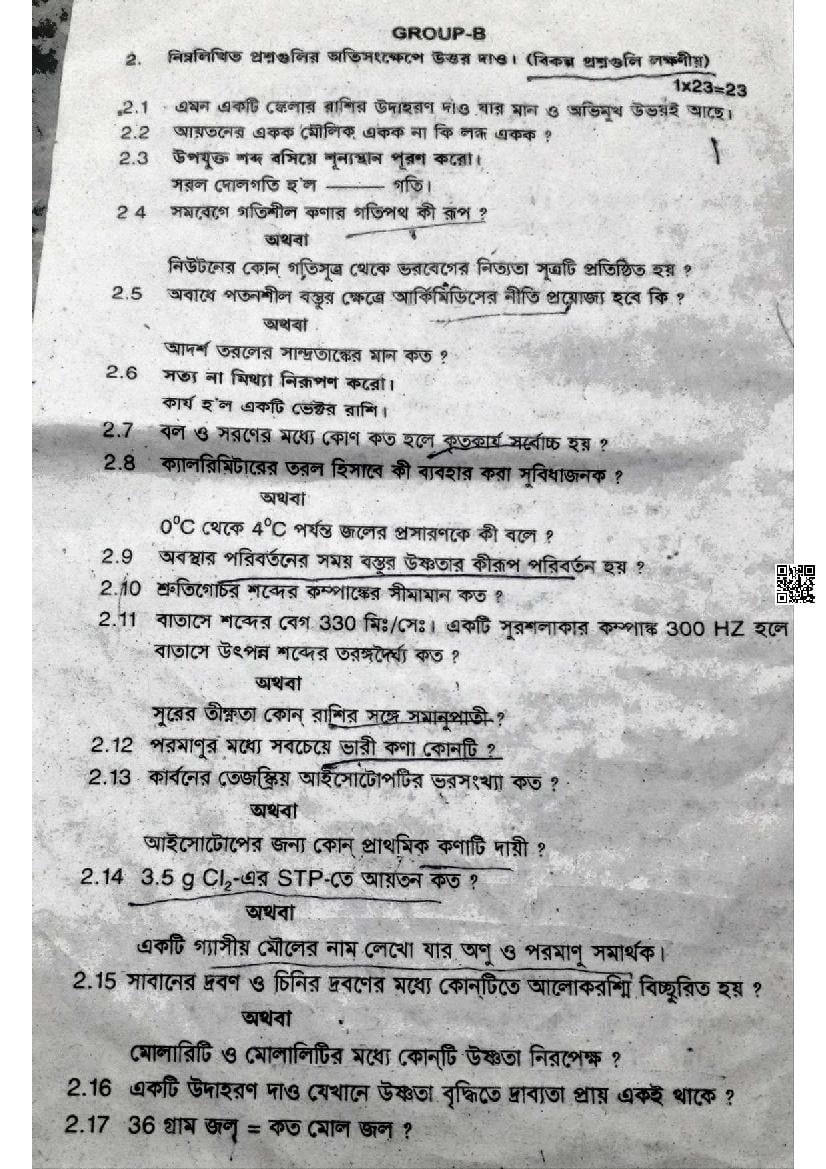 GROUP-B
2. নিম্নলিখিত প্রশ্নগুলির অতিসংক্ষেপে উত্তর দাও। (বিকল্প প্রশ্নগুলি লক্ষণীয়)
1x23=23
2.1 এমন একটি স্কেলার রাশির উদাহরণ দাও যার মান ও অভিমুখ উভয়ই আছে।
2.2 আয়তনের একক মৌলিক একক না কি লব্ধ একক ?
2.3 উপযুক্ত শব্দ বসিয়ে শূন্যস্থান পূরণ করো।
সরল দোলগতি হ'ল ——— গতি।
2 4 সমবেগে গতিশীল কণার গতিপথ কী রূপ ?
অথবা
নিউটনের কোন্ গতিসূত্র থেকে ভরবেগের নিত্যতা সূত্রটি প্রতিষ্ঠিত হয় ?
2.5 অবাধে পতনশীল বস্তুর ক্ষেত্রে আর্কিমিডিসের নীতি প্রযোজ্য হবে কি ?
অথবা
আদর্শ তরলের সান্দ্রতাঙ্কের মান কত ?
2.6 সত্য না মিথ্যা নিরূপণ করো।
কার্য হ'ল একটি ভেক্টর রাশি।
2.7 বল ও সরণের মধ্যে কোণ কত হলে কৃতকার্য সর্বোচ্চ হয় ?
2.8 ক্যালরিমিটারের তরল হিসাবে কী ব্যবহার করা সুবিধাজনক ?
অথবা
0⁰C থেকে 4⁰C পর্যন্ত জলের প্রসারণকে কী বলে ?
2.9 অবস্থার পরিবর্তনের সময় বস্তুর উষ্ণতার কীরূপ পরিবর্তন হয় ?
2.10 শ্রুতিগোচর শব্দের কম্পাঙ্কের সীমামান কত ?
2.11 বাতাসে শব্দের বেগ 330 মিঃ/সেঃ। একটি সুরশলাকার কম্পাঙ্ক 300 HZ হলে
বাতাসে উৎপন্ন শব্দের তরঙ্গদৈর্ঘ্য কত ?
অথবা
সুরের তীক্ষ্ণতা কোন্ রাশির সঙ্গে সমানুপাতী ?
2.12 পরমাণুর মধ্যে সবচেয়ে ভারী কণা কোনটি ?
2.13 কার্বনের তেজস্ক্রিয় আইসোটোপটির ভরসংখ্যা কত ?
অথবা
আইসোটোপের জন্য কোন্ প্রাথমিক কণাটি দায়ী ?
2.14 3.5 g Cl₂-এর STP-তে আয়তন কত ?
অথবা
একটি গ্যাসীয় মৌলের নাম লেখো যার অণু ও পরমাণু সমার্থক।
2.15 সাবানের দ্রবণ ও চিনির দ্রবণের মধ্যে কোন্‌টিতে আলোকরশ্মি বিচ্ছুরিত হয় ?
অথবা
মোলারিটি ও মোলালিটির মধ্যে কোন্‌টি উষ্ণতা নিরপেক্ষ ?
2.16 একটি উদাহরণ দাও যেখানে উষ্ণতা বৃদ্ধিতে দ্রাব্যতা প্রায় একই থাকে ?
2.17 36 গ্রাম জল = কত মোল জল ?